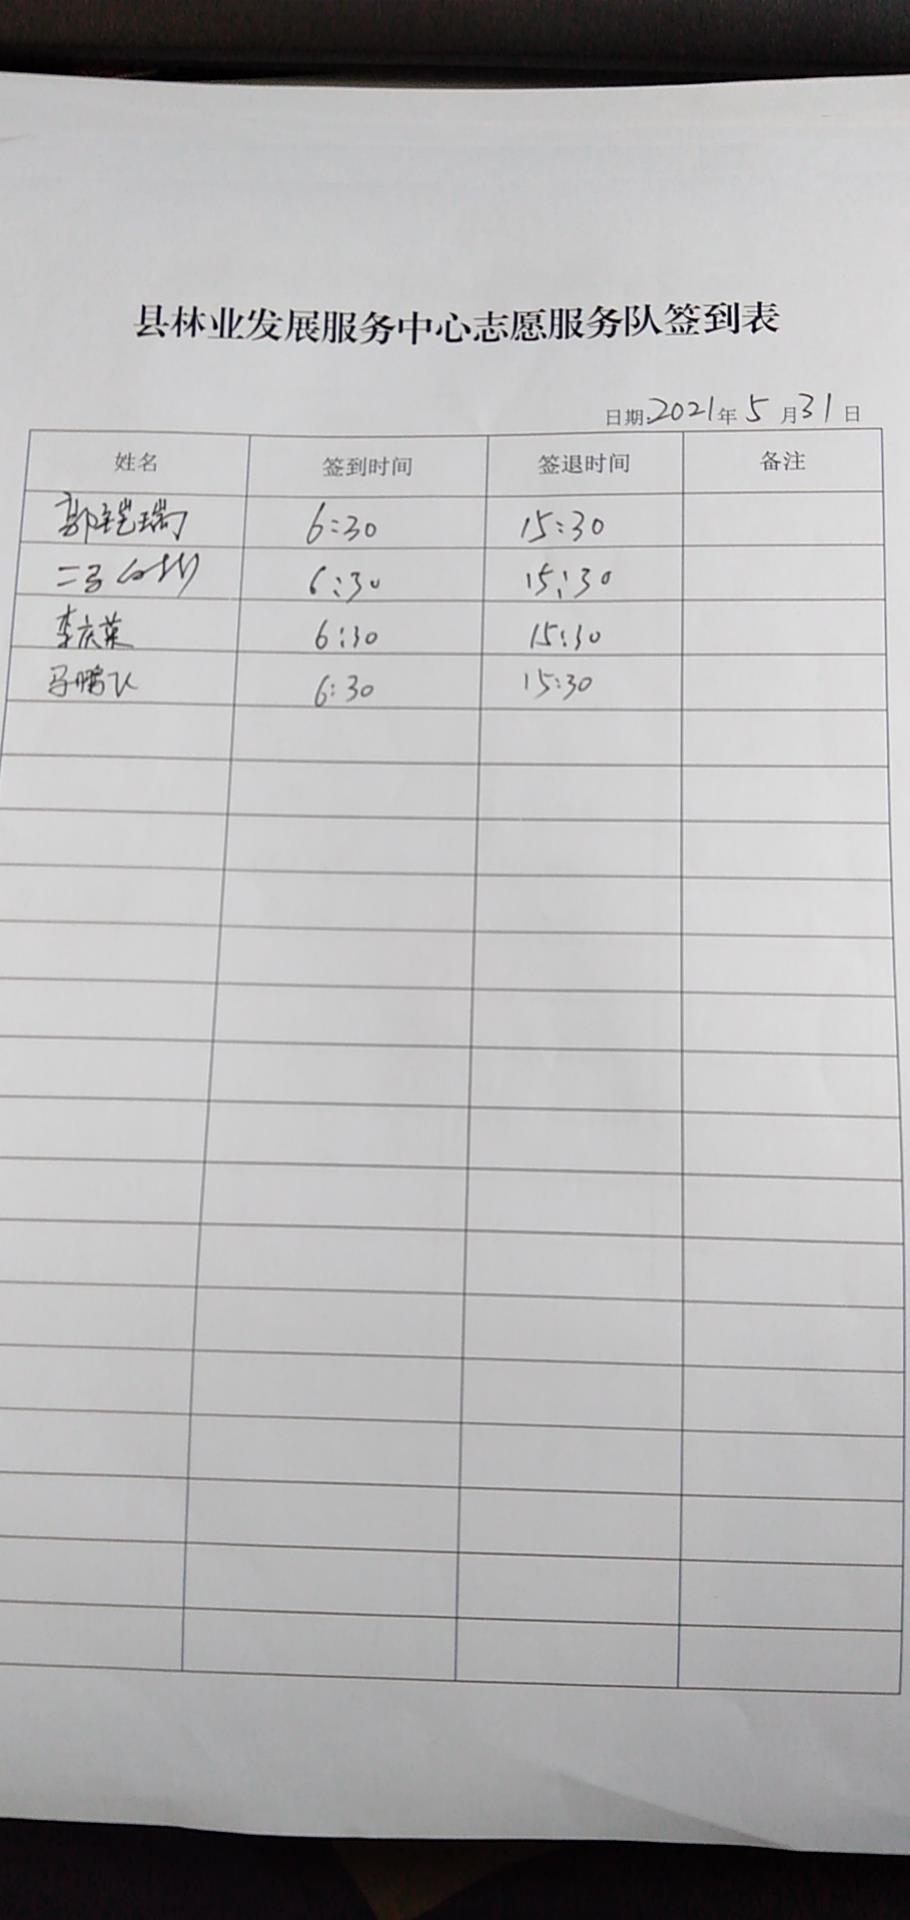 县林业发展服务中心志愿服务队签到表
日期:2021年5月31日
姓名 签到时间 签退时间 备注
郭铠瑞 6:30 15:30
6:30 15:30
李庆荣 6:30 15:30
马鹏飞 6:30 15:30